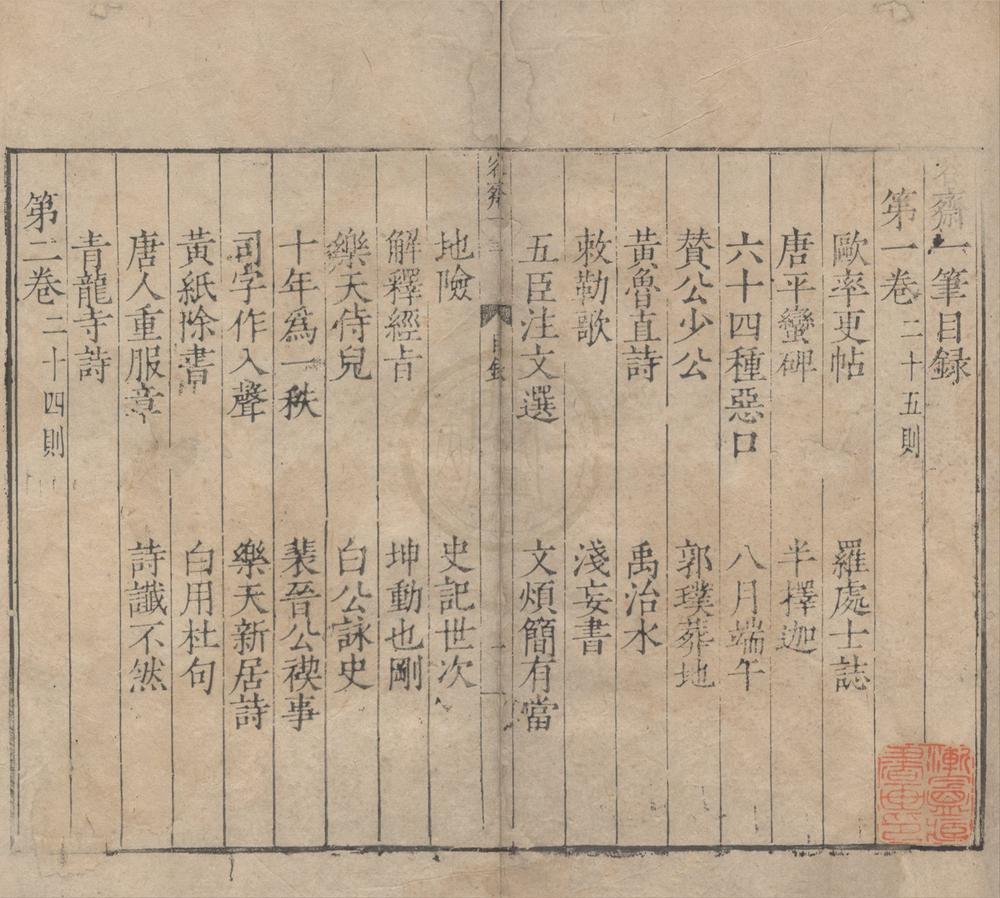 容齋一筆目録
第一卷 二十五則
歐率更帖 羅處士誌
唐平蠻碑 半擇迦
六十四種惡口 八月端午
贊公少公 郭璞葬地
黃魯直詩 禹治水
敕勒歌 淺妄書
五臣注文選 文煩簡有當
容齋一 目錄 一
地險 史記世次
解釋經旨 坤動也剛
樂天侍兒 白公詠史
十年爲一秩 裴晉公禊事
司字作入聲 樂天新居詩
黃紙除書 白用杜句
唐人重服章 詩讖不然
青龍寺詩
第二卷 二十四則